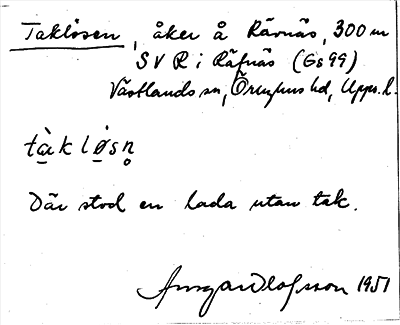 Taklösen, åker å Rävnäs, 300 m
S V R i Räfnäs (Gs 99)
Västlands sn, Örbyhus hd, Upps. l.
tàkl&#x00F3;sn̥
Där stod en lada utan tak.
Olofsson 1951